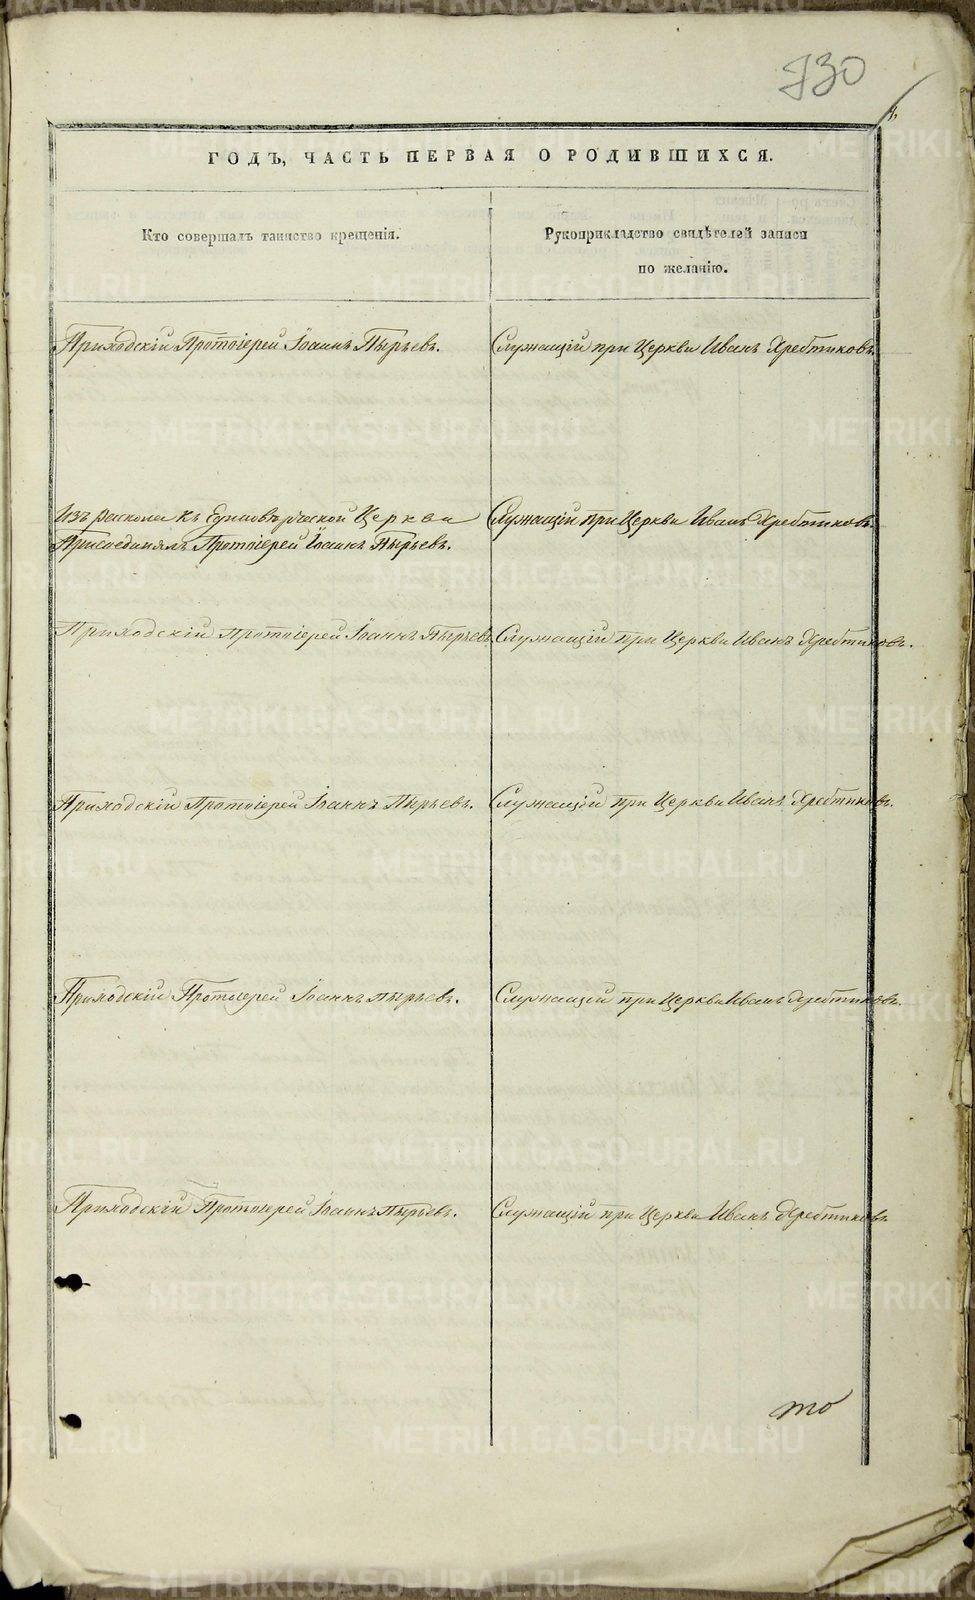 730
ГОДЪ, ЧАСТЬ ПЕРВАЯ О РОДИВШИХСЯ.
Кто совершалъ таинство крещенія.
Рукоприкладство свидѣтелей записи
по желанію.
Приходскій Протоіерей Іоаннъ Пырьевъ.
Служащій при Церкви Иванъ Хребтиковъ.
Изъ раскола къ Единовѣрческой Церкви
Присоединялъ Протоіерей Іоаннъ Пырьевъ.
Служащій при Церкви Иванъ Хребтиковъ.
Приходскій Протоіерей Іоаннъ Пырьевъ
Служащій при Церкви Иванъ Хребтиковъ.
Приходскій Протоіерей Іоаннъ Пырьевъ.
Служащій при Церкви Иванъ Хребтиковъ.
Приходскій Протоіерей Іоаннъ Пырьевъ.
Служащій при Церкви Иванъ Хребтиковъ.
Приходскій Протоіерей Іоаннъ Пырьевъ.
Служащій при Церкви Иванъ Хребтиковъ.
то
METRIKI.GASO-URAL.RU